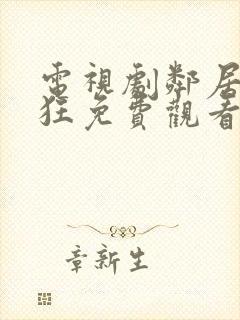 電視劇鄰居
狂免費觀看
章新生